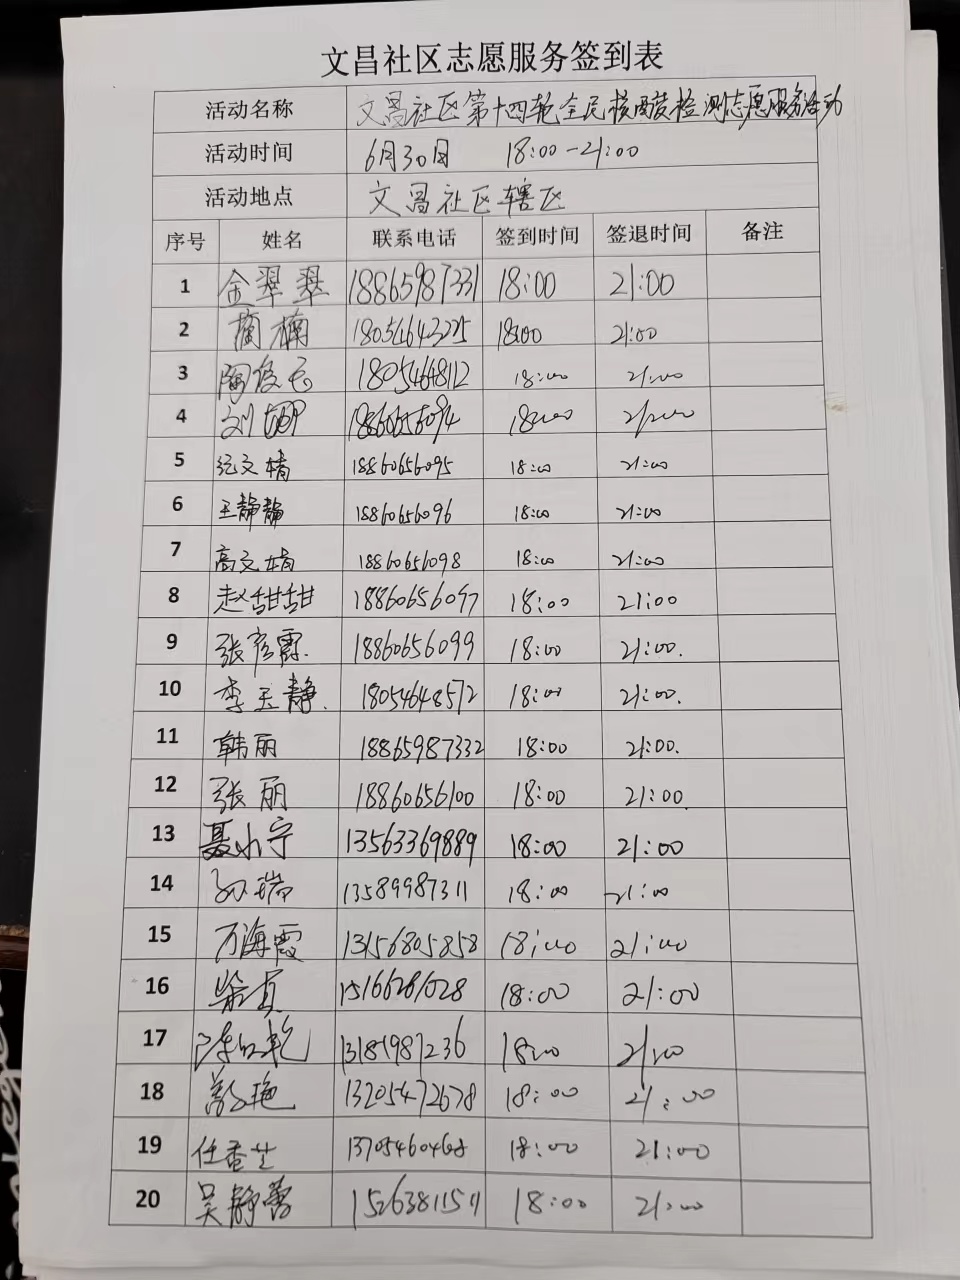 文昌社区志愿服务签到表
活动名称 文昌社区第十四轮全民核酸检测志愿服务活动
活动时间 6月30日 18:00-21:00
活动地点 文昌社区辖区
序号 姓名 联系电话 签到时间 签退时间 备注
1 金翠翠 18865987331 18:00 21:00
2 蔺楠 18054643225 18:00 21:00
3 陶俊玉 18054648112 18:00 21:00
4 刘娜 18860656094 18:00 21:00
5 纪文靖 18860656095 18:00 21:00
6 王静静 18860656096 18:00 21:00
7 高文娟 18860656098 18:00 21:00
8 赵甜甜 18860656097 18:00 21:00
9 张彦霞. 18860656099 18:00 21:00.
10 李玉静. 18054648572 18:00 21:00.
11 韩丽 18865987332 18:00 21:00.
12 张丽 18860656100 18:00 21:00.
13 聂小宁 13563369889 18:00 21:00
14 孙瑞 13589987311 18:00 21:00
15 万海霞 13156805858 18:00 21:00
16 柴真 18:00 21:00
17 13181981236 18:00 21:00
18 艳 13205472678 18:00 21:00
19 任香芝 13705460468 18:00 21:00
20 吴静蕾 15263811511 18:00 21:00